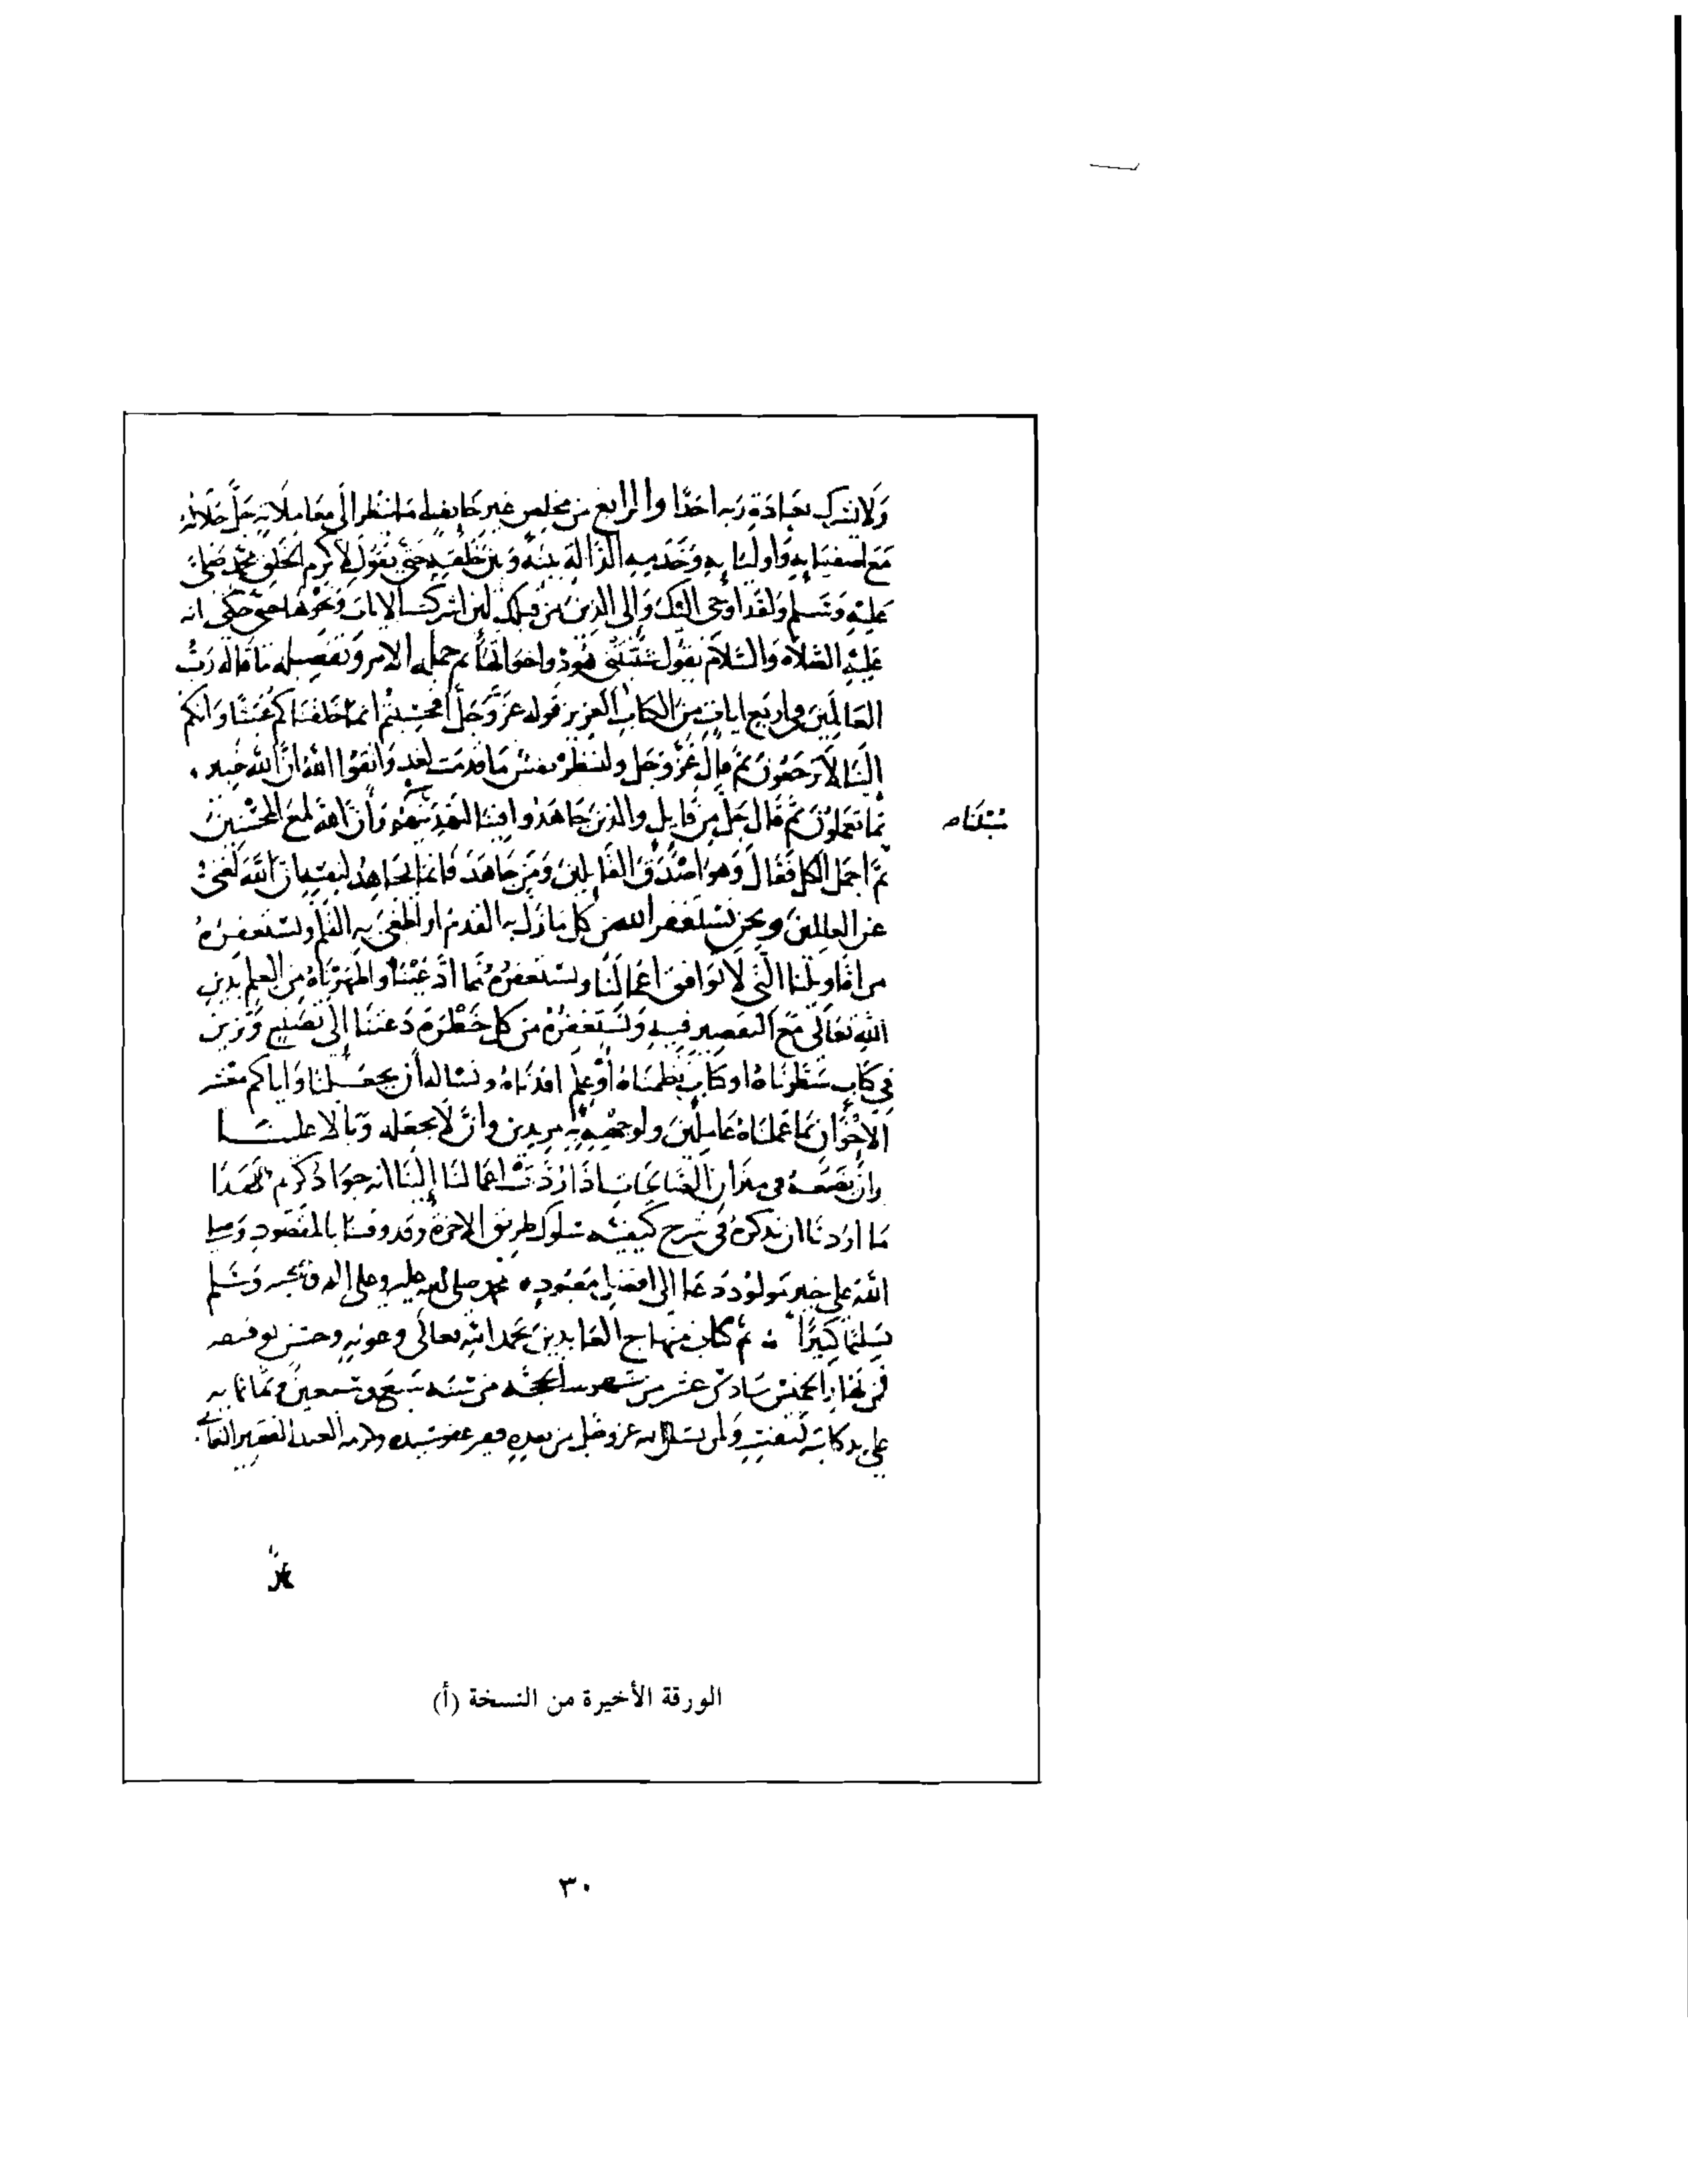 وَلَا يشرك بعبادة ربه احدا والرابع من مخلص غير خايف اما ينظر الى معاملاته جل جلاله
مع اصفيايه واوليايه وخدمه الدالة بينه وبين خلقه حتى يقول لاكرم الخلق محمد صلى
عليه وسلم ولقد اوحى اليك والى الذين من قبلك لين اشركت الايات ونحوها حتى حكى انه
عليه الصلاة والسلام يقول شيبتني هود واخواتها ثم جملة الامر وتفصيله ما قاله رب
العالمين في اربع ايات من الكتاب العزيز قوله عز وجل افحسبتم انما خلقناكم عبثا وانكم
الينا لا ترجعون ثم قال عز وجل ولتنظر نفس ما قدمت لغد واتقوا الله ان الله خبير
بما تعملون ثم قال جل من قايل والذين جاهدوا فينا لنهدينهم وان الله لمع المحسنين
سبلنا ص
ثم اجمل الكل فقال وهو اصدق القايلين ومن جاهد فانما يجاهد لنفسه ان الله لغني
عن العالمين ونحن نستغفر الله من كل ما زل به القدم او طغى به القلم ونستغفره
من اقاويلنا التي لا توافق اعمالنا ونستغفره مما ادعيناه واظهرناه من العلم بدين
الله تعالى مع التقصير فيه ونستغفره من كل خطرة دعتنا الى تصنع وتزين
في كتاب سطرناه او كتاب نظمناه او علم افدناه ونساله ان يجعلنا واياكم معشر
الاخوان بما علمناه عاملين ولوجهه به مريدين وان لا يجعله وبالا علينا
وان يضعه في ميزان الصالحات اذا ردت اعمالنا الينا انه جواد كريم فهذا
ما اردنا ان نذكره في شرح كيفية سلوك طريق الاخرة وقد وفينا بالمقصود وصلى
الله على خير مولود دعا الى افضل معبود محمد صلى الله عليه وعلى اله وصحبه وسلم
تسليما كثيرا تم كتاب منهاج العابدين بحمد الله تعالى وعونه وحسن توفيقه
في نهار الخميس سادس عشر من شهر الحجة من سنة سبع وتسعين وثمانمايه
على يد كاتبه لنفسه ولمن يشاء الله عز وجل من بعده فقير عفو سيده وكرمه العبد الفقير
الورقة الأخيرة من النسخة (أ)
٣٠